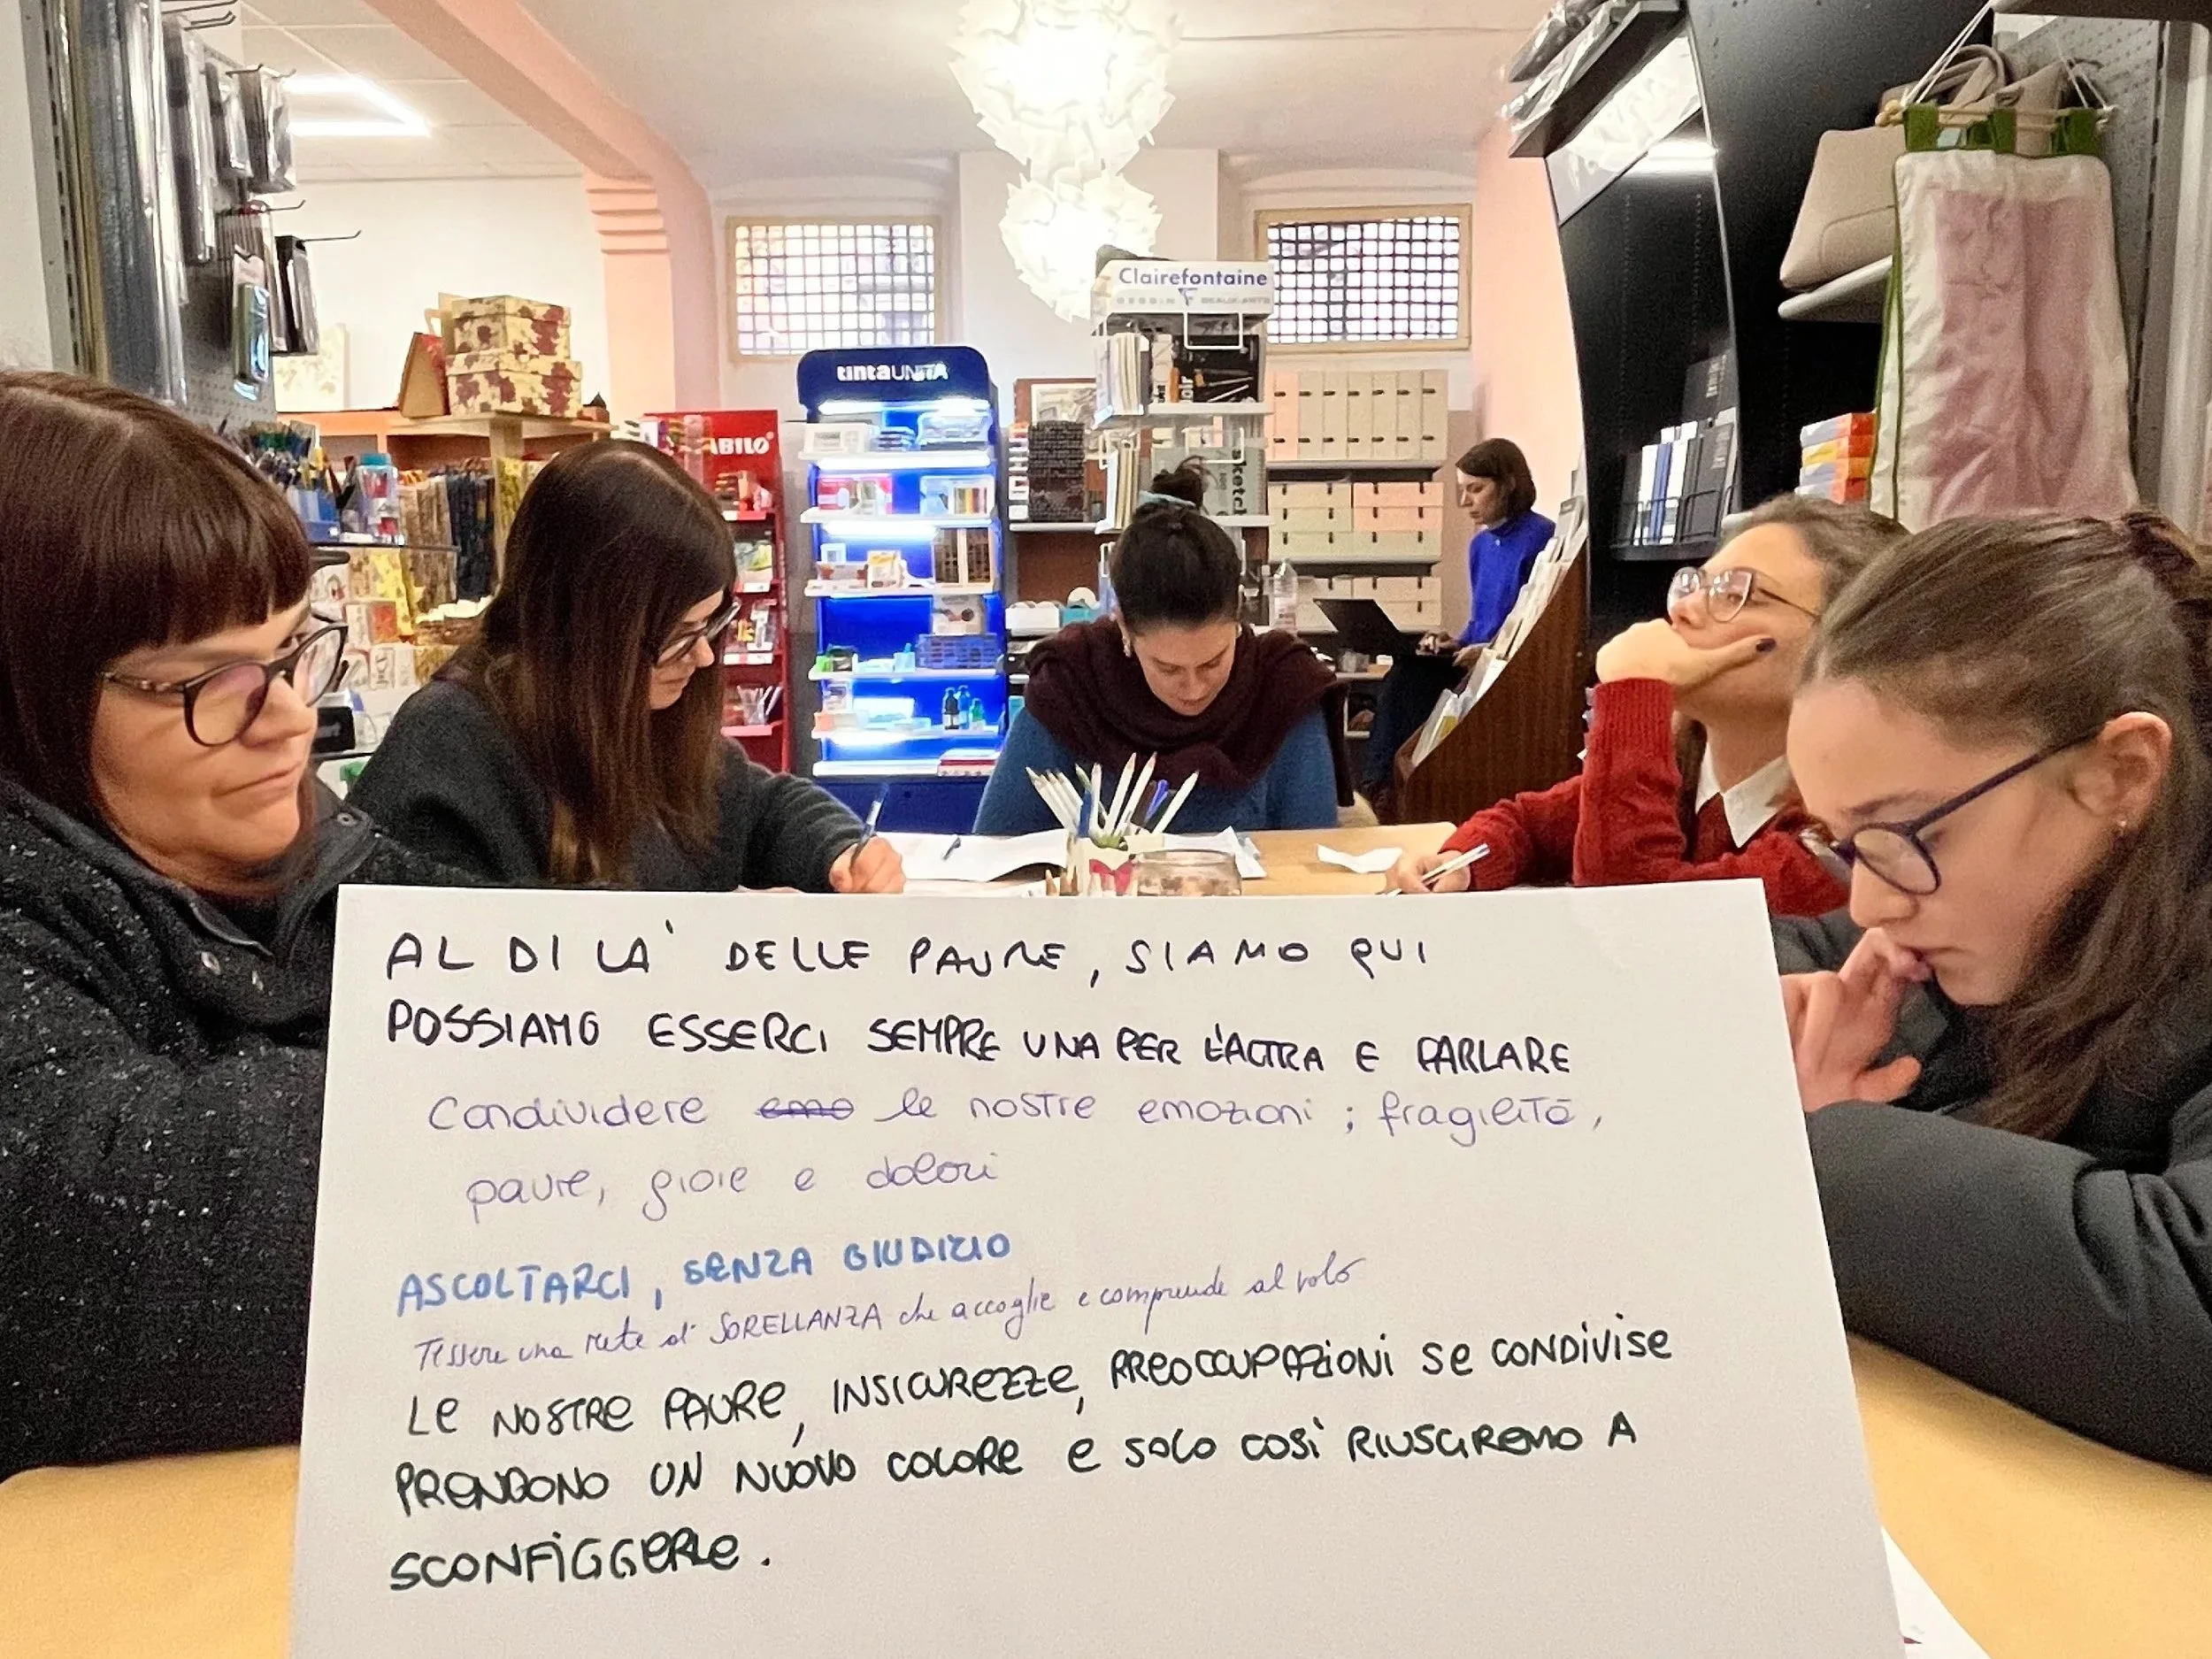 Clairefontaine
DESSIN BEAUX-ARTS
tintaUNITA
ABILO
sketch
AL DI LA' DELLE PAURE, SIAMO QUI
POSSIAMO ESSERCI SEMPRE UNA PER L'ALTRA E PARLARE
Condividere emo le nostre emozioni ; fragilità,
paure, gioie e dolori
ASCOLTARCI, SENZA GIUDIZIO
Tessere una rete di SORELLANZA che accoglie e comprende al volo
LE NOSTRE PAURE, INSICUREZZE, PREOCCUPAZIONI SE CONDIVISE
PRENDONO UN NUOVO COLORE E SOLO COSÌ RIUSCIREMO A
SCONFIGGERLE.